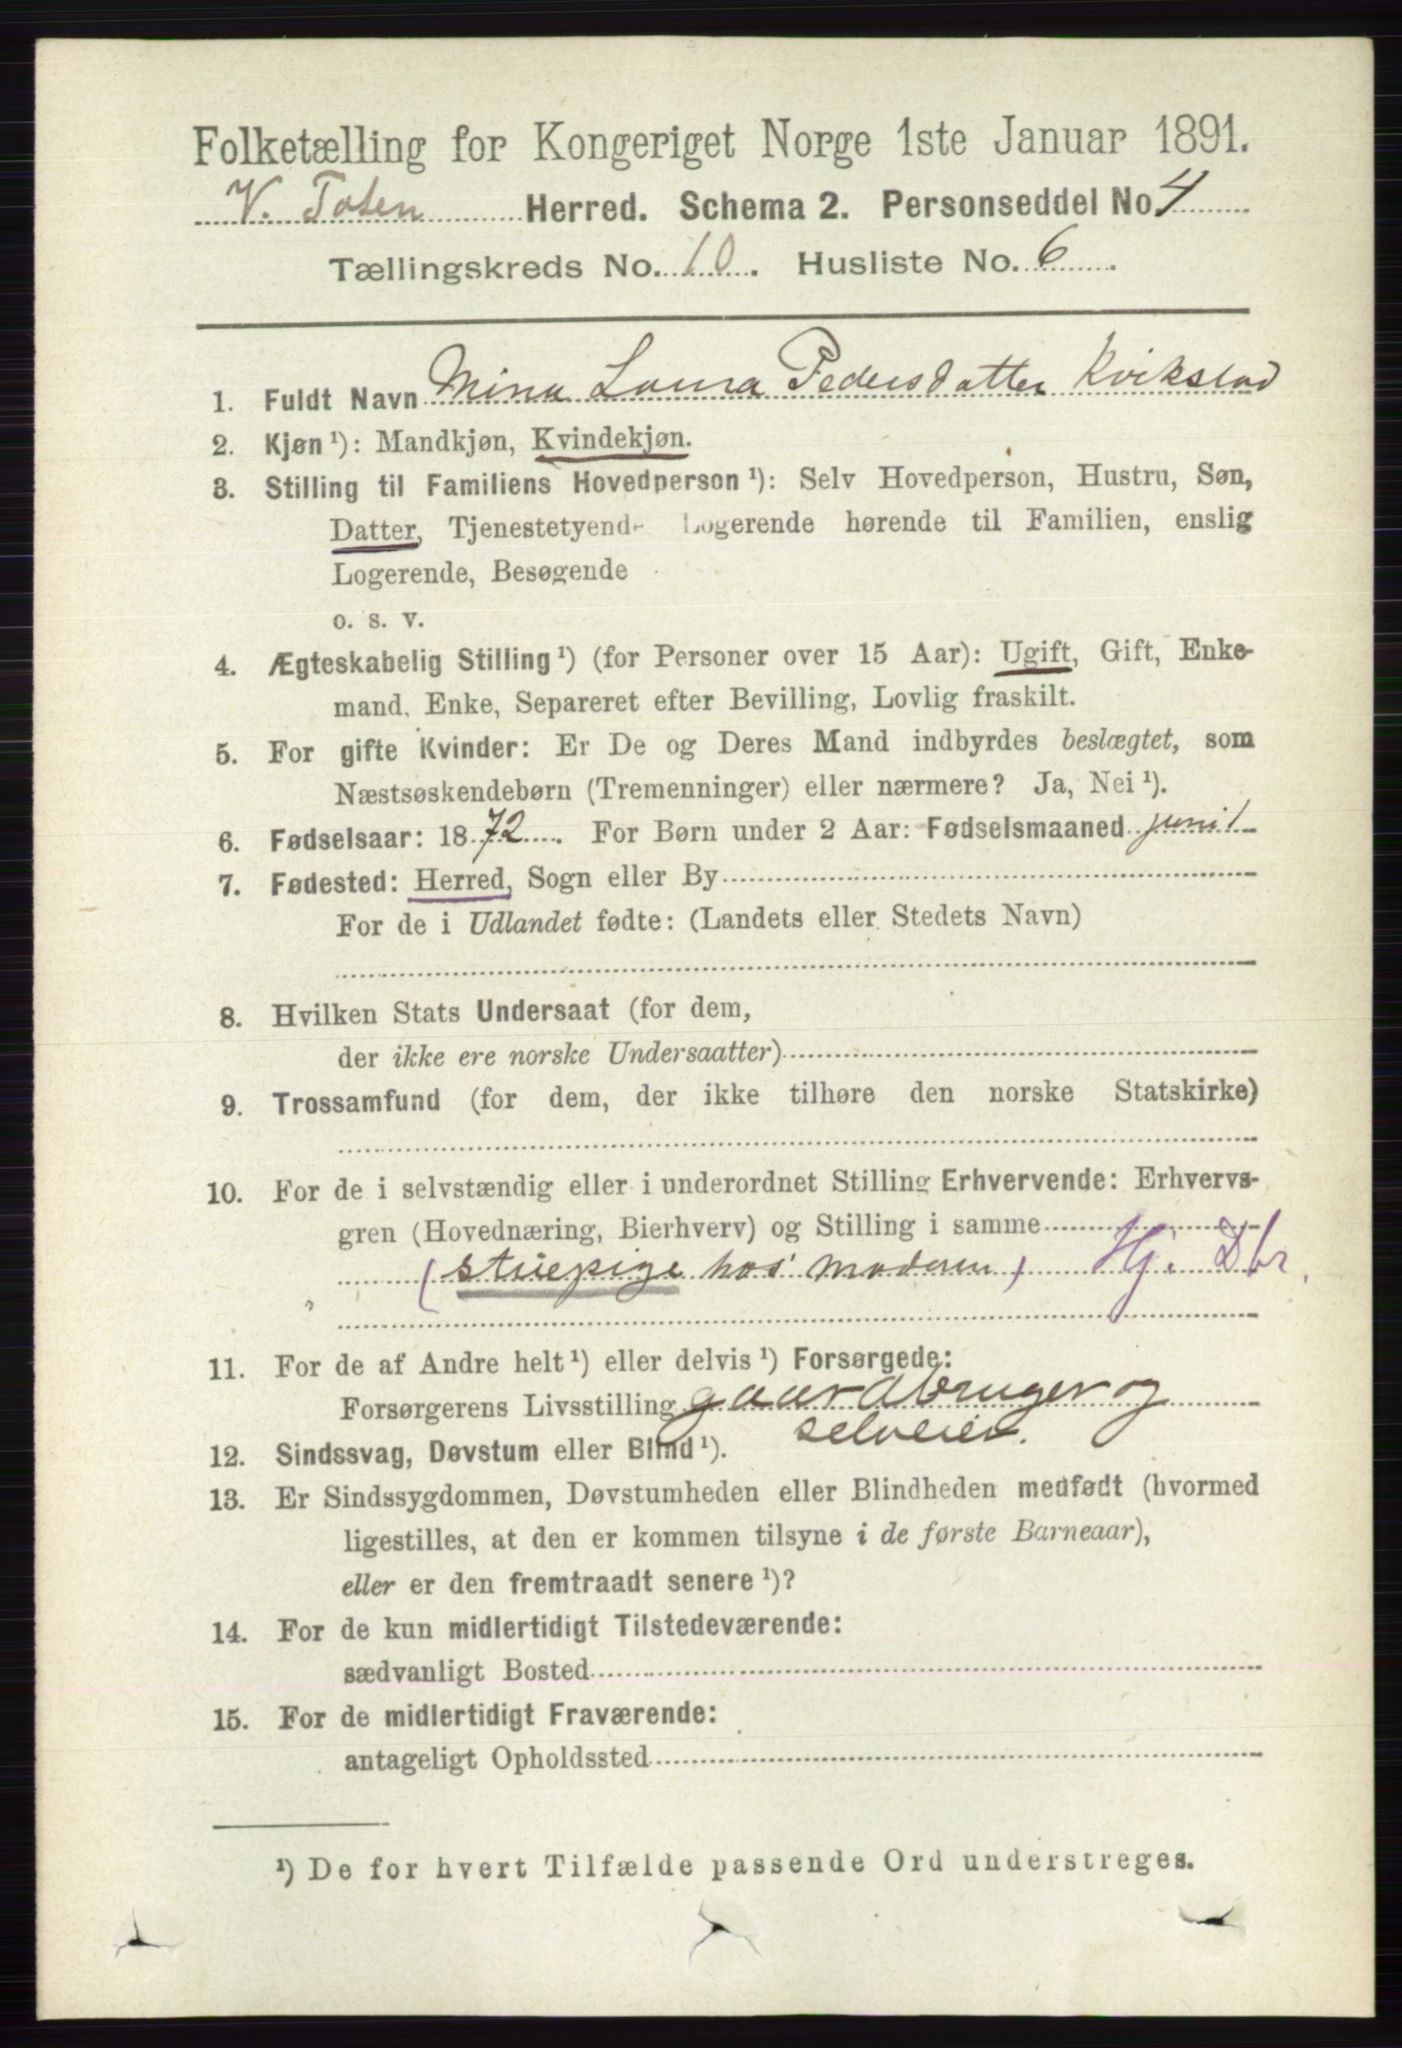 Folketælling for Kongeriget Norge 1ste Januar 1891.
V. Toten Herred. Schema 2. Personseddel No 4
Tællingskreds No. 10. Husliste No. 6.
1. Fuldt Navn Mina Laura Pedersdatter Kvikstad
2. Kjøn ¹): Mandkjøn, Kvindekjøn.
3. Stilling til Familiens Hovedperson ¹): Selv Hovedperson, Hustru, Søn,
Datter, Tjenestetyende Logerende hørende til Familien, enslig
Logerende, Besøgende
o. s. v.
4. Ægteskabelig Stilling ¹) (for Personer over 15 Aar): Ugift, Gift, Enke-
mand, Enke, Separeret efter Bevilling, Lovlig fraskilt.
5. For gifte Kvinder: Er De og Deres Mand indbyrdes beslægtet, som
Næstsøskendebørn (Tremenninger) eller nærmere? Ja, Nei ¹).
6. Fødselsaar: 1872. For Børn under 2 Aar: Fødselsmaaned juni 1
7. Fødested: Herred, Sogn eller By
For de i Udlandet fødte: (Landets eller Stedets Navn)
8. Hvilken Stats Undersaat (for dem,
der ikke ere norske Undersaatter)
9. Trossamfund (for dem, der ikke tilhøre den norske Statskirke)
10. For de i selvstændig eller i underordnet Stilling Erhvervende: Erhvervs-
gren (Hovednæring, Bierhverv) og Stilling i samme
(stuepige hos moderen) Hj. Dbr.
11. For de af Andre helt ¹) eller delvis ¹) Forsørgede:
Forsørgerens Livsstilling gaardbruger og
selveier.
12. Sindssvag, Døvstum eller Blind ¹).
13. Er Sindssygdommen, Døvstumheden eller Blindheden medfødt (hvormed
ligestilles, at den er kommen tilsyne i de første Barneaar),
eller er den fremtraadt senere ¹)?
14. For de kun midlertidigt Tilstedeværende:
sædvanligt Bosted
15. For de midlertidigt Fraværende:
antageligt Opholdssted
¹) De for hvert Tilfælde passende Ord understreges.